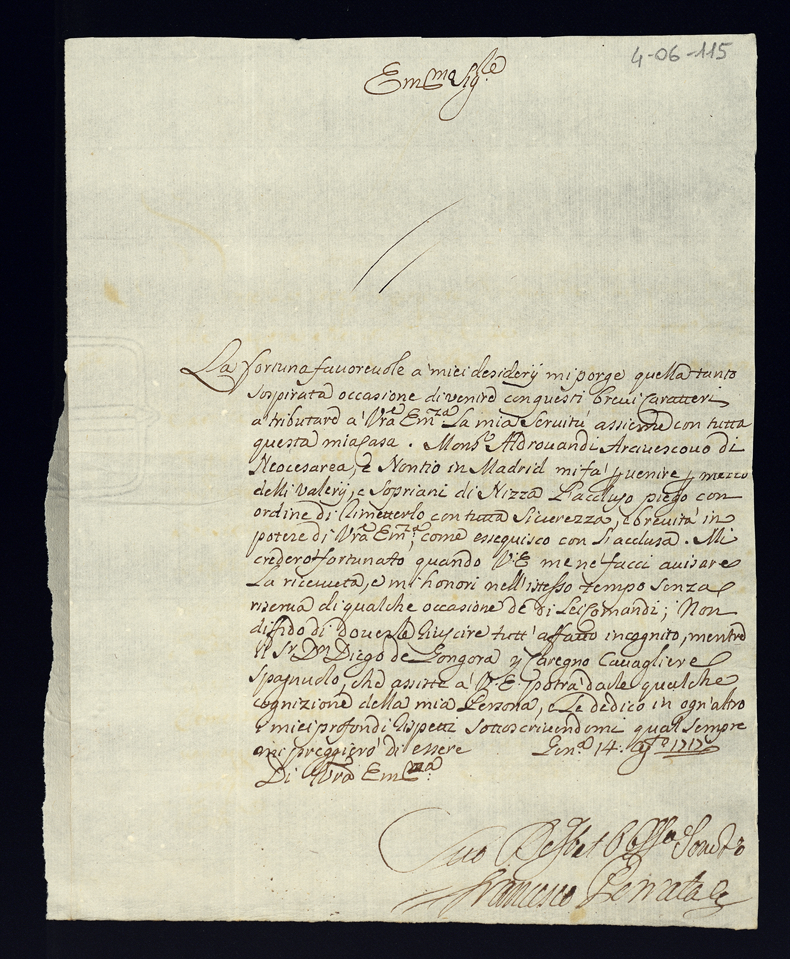 4-06-115
Em.mo Sig.re
La fortuna fauoreuole a' miei desiderij mi porge quella tanto
sospirata occasione di venire con questi breui caratteri
a tributare a' Vra Em.za La mia Seruitù assieme con tutta
questa mia Casa. Mons.r Aldrouandi Arciuescouo di
Neocesarea, e Nontio in Madrid mi fà peruenire per mezzo
delli Valerij, e Sopriani di Nizza L'accluso piego con
ordine di rimetterlo con tutta Sicurezza, e breuità in
potere di Vra Em.za, come esseguisco con L'acclusa. Mi
crederò fortunato, quando V.E. me ne facci auisare
La riceuuta, e mi honori nell'istesso tempo senza
riserua di qualche occasione de di Lei Comandi; Non
diffido di douerle riuscire tutt'affatto incognito, mentre
il Sr. Dn Diego de Gongora y Cavagliere
Spagnuolo, che assiste a' V.E. potrà darle qualche
cognizione della mia Persona, e Le dedico in ogn'altro
i miei profondi rispetti sottoscriuendomi qual sempre
mi preggierò di essere Gen.a 14. 1717
Di Vra Em.za
Suo
Francesco